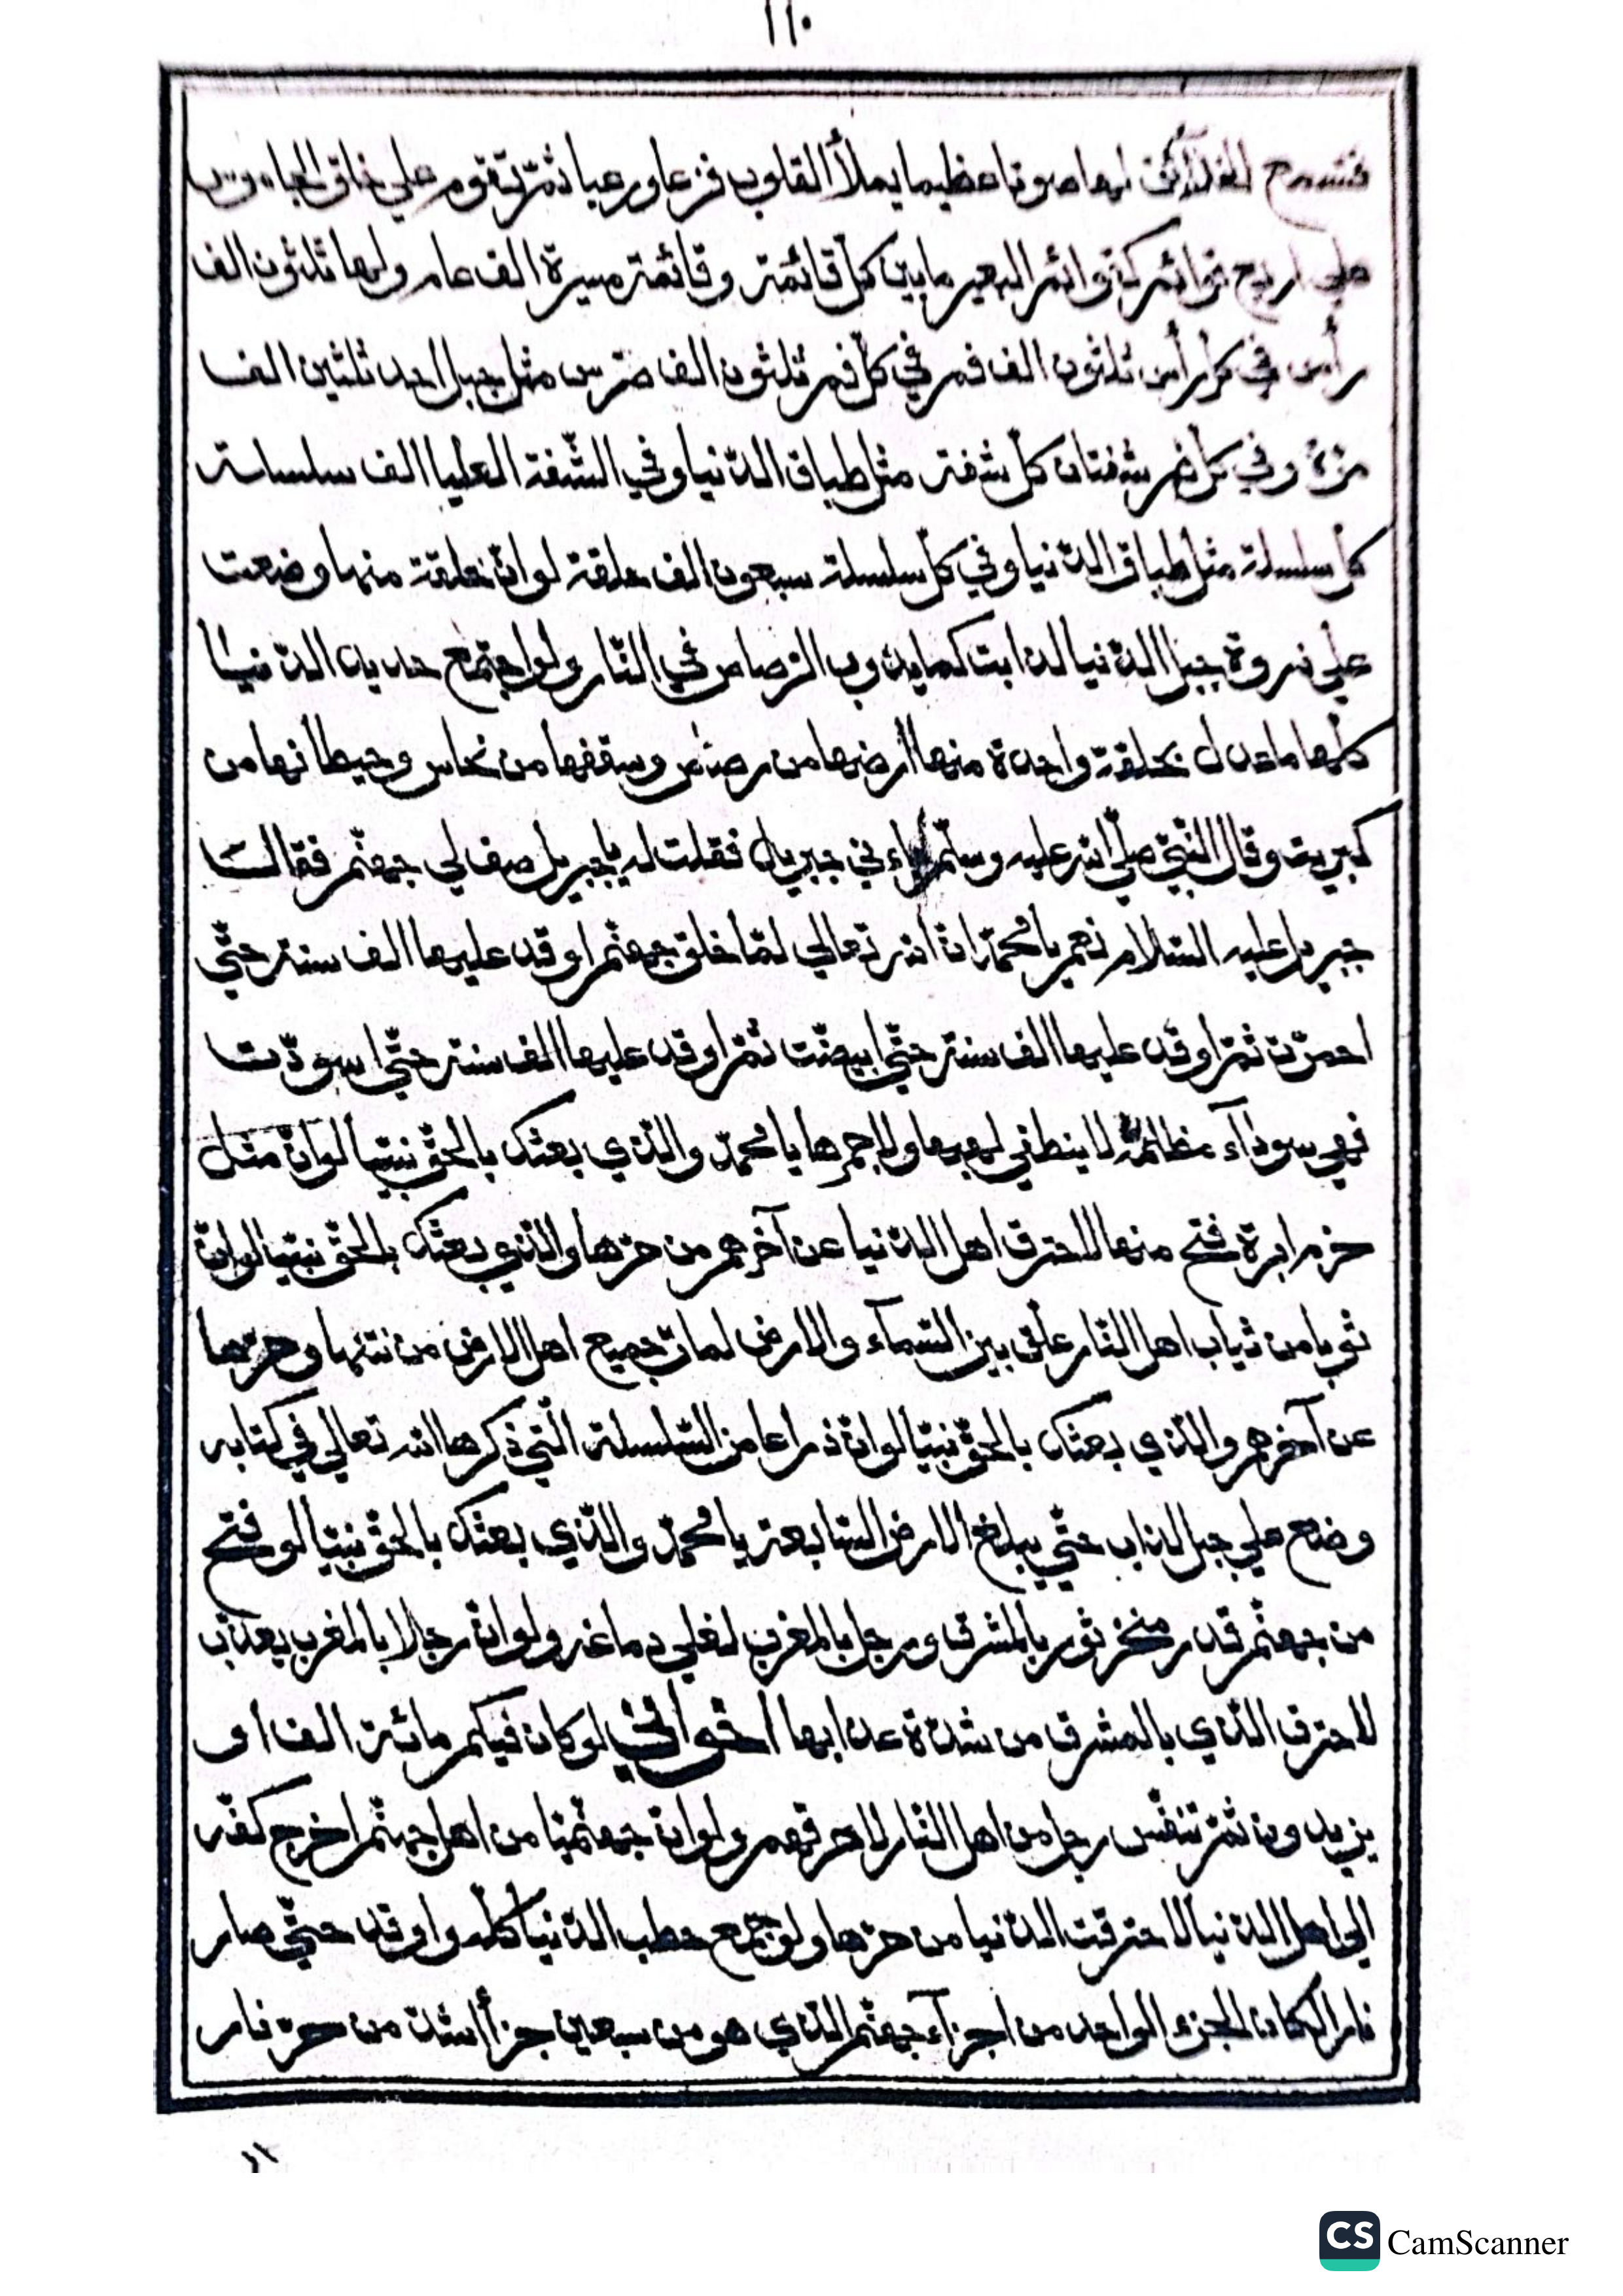 ١١٠
فتسمع الخلائق لها صوتا عظيما يملأ القلوب فزعا ورعبا ثمّ تقوم علي خلق الجاموس
علي اربع قوائم كقوائم البعير ما بين كلّ قائمة وقائمة مسيرة الف عام ولها ثلثون الف
رأس في كلّ رأس ثلثون الف فم في كلّ فم ثلثون الف ضرس مثل جبل احد ثلثين الف
مرّة وفي كلّ فم شفتان كلّ شفة مثل طباق الدّنيا وفي الشّفة العليا الف سلسلة
كلّ سلسلة مثل طباق الدّنيا وفي كلّ سلسلة سبعون الف حلقة لو انّ حلقة منها وضعت
علي ذروة جبل الدّنيا لذابت كما يذوب الرّصاص في النّار ولو اجتمع حديد الدّنيا
كلّها ما عدل بحلقة واحدة منها أرضها من رصاص وسقفها من نحاس وحيطانها من
كبريت وقال النّبيّ صلّي الله عليه وسلّم جاءني جبريل فقلت له يا جبريل صف لي جهنّم فقال
جبريل عليه السّلام نعم يا محمّد انّ الله تعالي لمّا خلق جهنّم اوقد عليها الف سنة حتّي
احمرّت ثمّ اوقد عليها الف سنة حتّي ابيضّت ثمّ اوقد عليها الف سنة حتّي اسودّت
فهي سودآء مظلمة لا ينطفي لهبها ولا جمرها يا محمّد والّذي بعثك بالحقّ نبيّا لو انّ مثل
خرم ابرة فتح منها لاحترق اهل الدّنيا عن آخرهم من حرّها والّذي بعثك بالحقّ نبيّا لو انّ
ثوبا من ثياب اهل النّار علّق بين السّمآء والارض لمات جميع اهل الارض من نتنها وحرّها
عن آخرهم والّذي بعثك بالحقّ نبيّا لو انّ ذراعا من السّلسلة الّتي ذكرها الله تعالي في كتابه
وضع علي جبل لذاب حتّي يبلغ الارض السّابعة يا محمّد والّذي بعثك بالحقّ نبيّا لو فتح
من جهنّم قدر منخر ثور بالمشرق ورجل بالمغرب لغلي دماغه ولو انّ رجلا بالمغرب يعذّب
لاحترق الّذي بالمشرق من شدّة عذابها اخواني لو كان فيكم مائة الف او
يزيدون ثمّ تنفّس رجل من اهل النّار لاحرقهم ولو انّ جهنّميّا من اهل جهنّم اخرج كفّه
الي اهل الدّنيا لاحترقت الدّنيا من حرّها ولو جمع حطب الدّنيا كلّه واوقد حتّي صار
نارا لكان الجزء الواحد من اجزآء جهنّم الّذي هو من سبعين جزأ اشدّ من حرّ نار
CS CamScanner